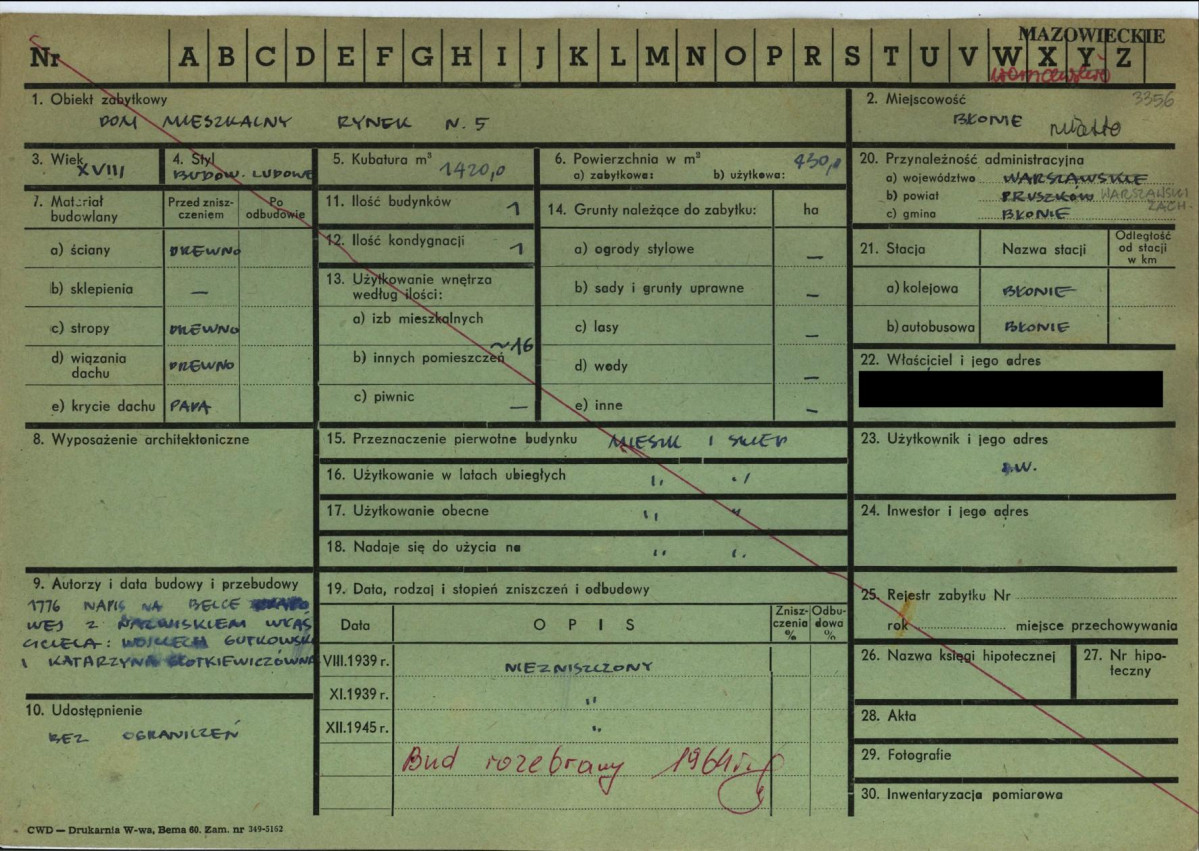 MAZOWIECKIE
Nr A B C D E F G H I J K L M N O P R S T U V W X Y Z
warszawskie
1. Obiekt zabytkowy
DOM MIESZKALNY RYNEK N. 5
2. Miejscowość 3356
BŁONIE miasto
3. Wiek
XVIII
4. Styl
BUDOW. LUDOWE
5. Kubatura m³
1420,0
6. Powierzchnia w m²
a) zabytkowa: b) użytkowa: 450,0
7. Materiał budowlany
Przed zniszczeniem
Po odbudowie
a) ściany DREWNO
b) sklepienia —
c) stropy DREWNO
d) wiązania dachu DREWNO
e) krycie dachu PAPA
8. Wyposażenie architektoniczne
9. Autorzy i data budowy i przebudowy
1776 NAPIS NA BELCE
WEJ Z NAZWISKIEM WŁAŚ
CICIELA: WOJCIECH GUTKOWSKI
I KATARZYNA KOTKIEWICZÓWNA
10. Udostępnienie
BEZ OGRANICZEŃ
11. Ilość budynków 1
12. Ilość kondygnacji 1
13. Użytkowanie wnętrza
według ilości:
a) izb mieszkalnych
~16
b) innych pomieszczeń
c) piwnic —
14. Grunty należące do zabytku: ha
a) ogrody stylowe —
b) sady i grunty uprawne —
c) lasy —
d) wody —
e) inne —
15. Przeznaczenie pierwotne budynku MIESZK I SKLEP
16. Użytkowanie w latach ubiegłych " "
17. Użytkowanie obecne " "
18. Nadaje się do użycia na " "
19. Data, rodzaj i stopień zniszczeń i odbudowy
Data OPIS Zniszczenia % Odbudowa %
VIII.1939 r. NIEZNISZCZONY
XI.1939 r. "
XII.1945 r. "
Bud rozebrany 1964 r.
20. Przynależność administracyjna
a) województwo WARSZAWSKIE
b) powiat PRUSZKÓW WARSZAWSKI
ZACH.
c) gmina BŁONIE
21. Stacja Nazwa stacji Odległość od stacji w km
a) kolejowa BŁONIE
b) autobusowa BŁONIE
22. Właściciel i jego adres
23. Użytkownik i jego adres
j.w.
24. Inwestor i jego adres
25. Rejestr zabytku Nr
rok miejsce przechowywania
26. Nazwa księgi hipotecznej
27. Nr hipoteczny
28. Akta
29. Fotografie
30. Inwentaryzacja pomiarowa
CWD — Drukarnia W-wa, Bema 60. Zam. nr 349-5162